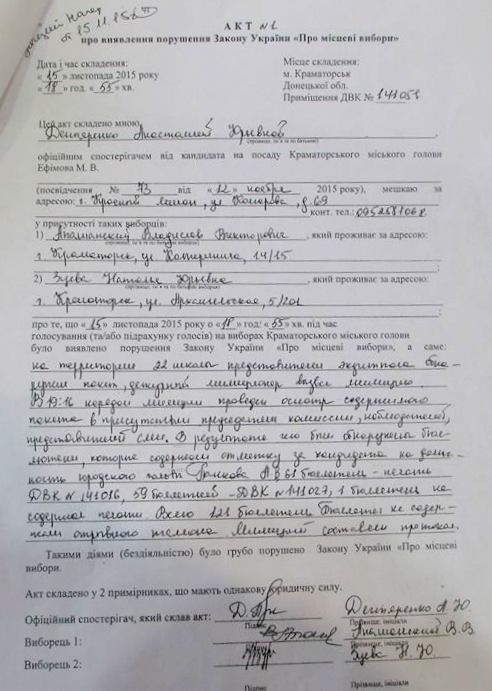 от 15.11.15г
А К Т № 1
про виявлення порушення Закону України «Про місцеві вибори»
Дата і час складення: Місце складення:
« 15 » листопада 2015 року м. Краматорськ
« 18 » год. « 55 » хв. Донецької обл.
Приміщення ДВК № 141051
Цей акт складено мною,
Дегтяренко Анастасией Юрьевной
(прізвище, ім'я та по батькові)
офіційним спостерігачем від кандидата на посаду Краматорського міського голови
Ефімова М. В.
(посвідчення № 73 від « 12 » ноября 2015 року), мешкаю за
адресою: г. Красный Лиман, ул. д. 69
конт. тел.:
у присутності таких виборців:
1) Владислав Викторович , який проживає за адресою:
(прізвище, ім'я та по батькові)
г. Краматорск, ул. 14/15
2) Зуева Наталья Юрьевна , який проживає за адресою:
(прізвище, ім'я та по батькові)
г. Краматорск, ул. Архангельская, 5/201
про те, що « 15 » листопада 2015 року о « 18 » год. « 55 » хв. під час
голосування (та/або підрахунку голосів) на виборах Краматорського міського голови
було виявлено порушення Закону України «Про місцеві вибори», а саме:
на территории 22 школы представители экзитпола обна-
ружили пакет, дежурный милиционер вызвал милицию.
В 19:16 нарядом милиции проведен осмотр содержимого
пакета в присутствии председателя комиссии, наблюдателей,
представителей сми. В результате чего были обнаружены бюл-
летени, которые содержали отметку за кандидата на долж-
ность городского головы Панкова А В 61 бюллетень - печать
ДВК № 141016, 59 бюллетней - ДВК № 141027, 1 бюллетень не
содержал печати. Всего 121 бюллетень. Бюллетени не содер-
жали отрывного талона. Милицией составлен протокол.
Такими діями (бездіяльністю) було грубо порушено Закону України «Про місцеві
вибори.
Акт складено у 2 примірниках, що мають однакову юридичну силу.
Офіційний спостерігач, який склав акт: Дегтяренко А. Ю.
Підпис Прізвище, ініціали
Виборець 1: В. В.
Підпис Прізвище, ініціали
Виборець 2: Зуева Н. Ю.
Підпис Прізвище, ініціали